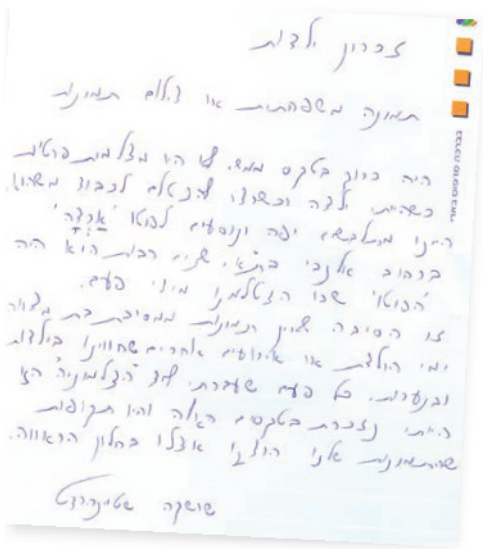 זכרון ילדות
תמונה משפחתית או צילום תמונות
היה כרוך בטקס ממש. לא היו מצלמות פרטיות
כשהייתי ילדה וכשרצו להצטלם לכבוד משהו,
היינו מתלבשים יפה ונוסעים לפוטו 'ארצה'
ברחוב אלנבי בת"א. שנים רבות הוא היה
'הפוטו' שבו הצטלמנו מידי פעם.
זו הסיבה שאין תמונות ממסיבת בת מצווה
ימי הולדת או אירועים אחרים שחווינו בילדות
ובנערות. כל פעם שעברתי ליד "הצלמניה" הזו
הייתי נזכרת בטקסים האלה והיו תקופות
שהתמונות שלנו הוצגו אצלו בחלון הראווה.
שושקה